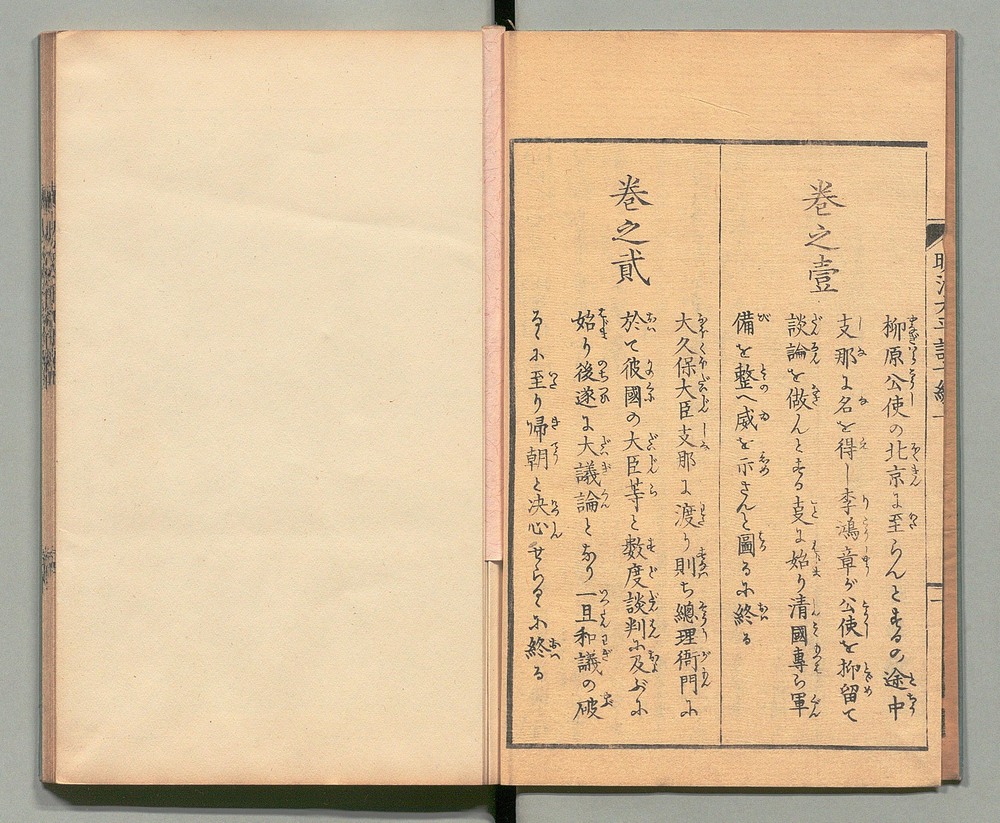 巻之壹
柳原公使の北京に至らんとするの途中
支那に名を得し李鴻章が公使を抑留て
談論を做んとする事に始り清國專ら軍
備を整へ威を示さんと圖るに終る
巻之貳
大久保大臣支那に渡り則ち總理衙門に
於て彼國の大臣等と數度談判に及ぶに
始り後遂に大議論となり一旦和議の破
るゝに至り帰朝と决心せらるゝに終る